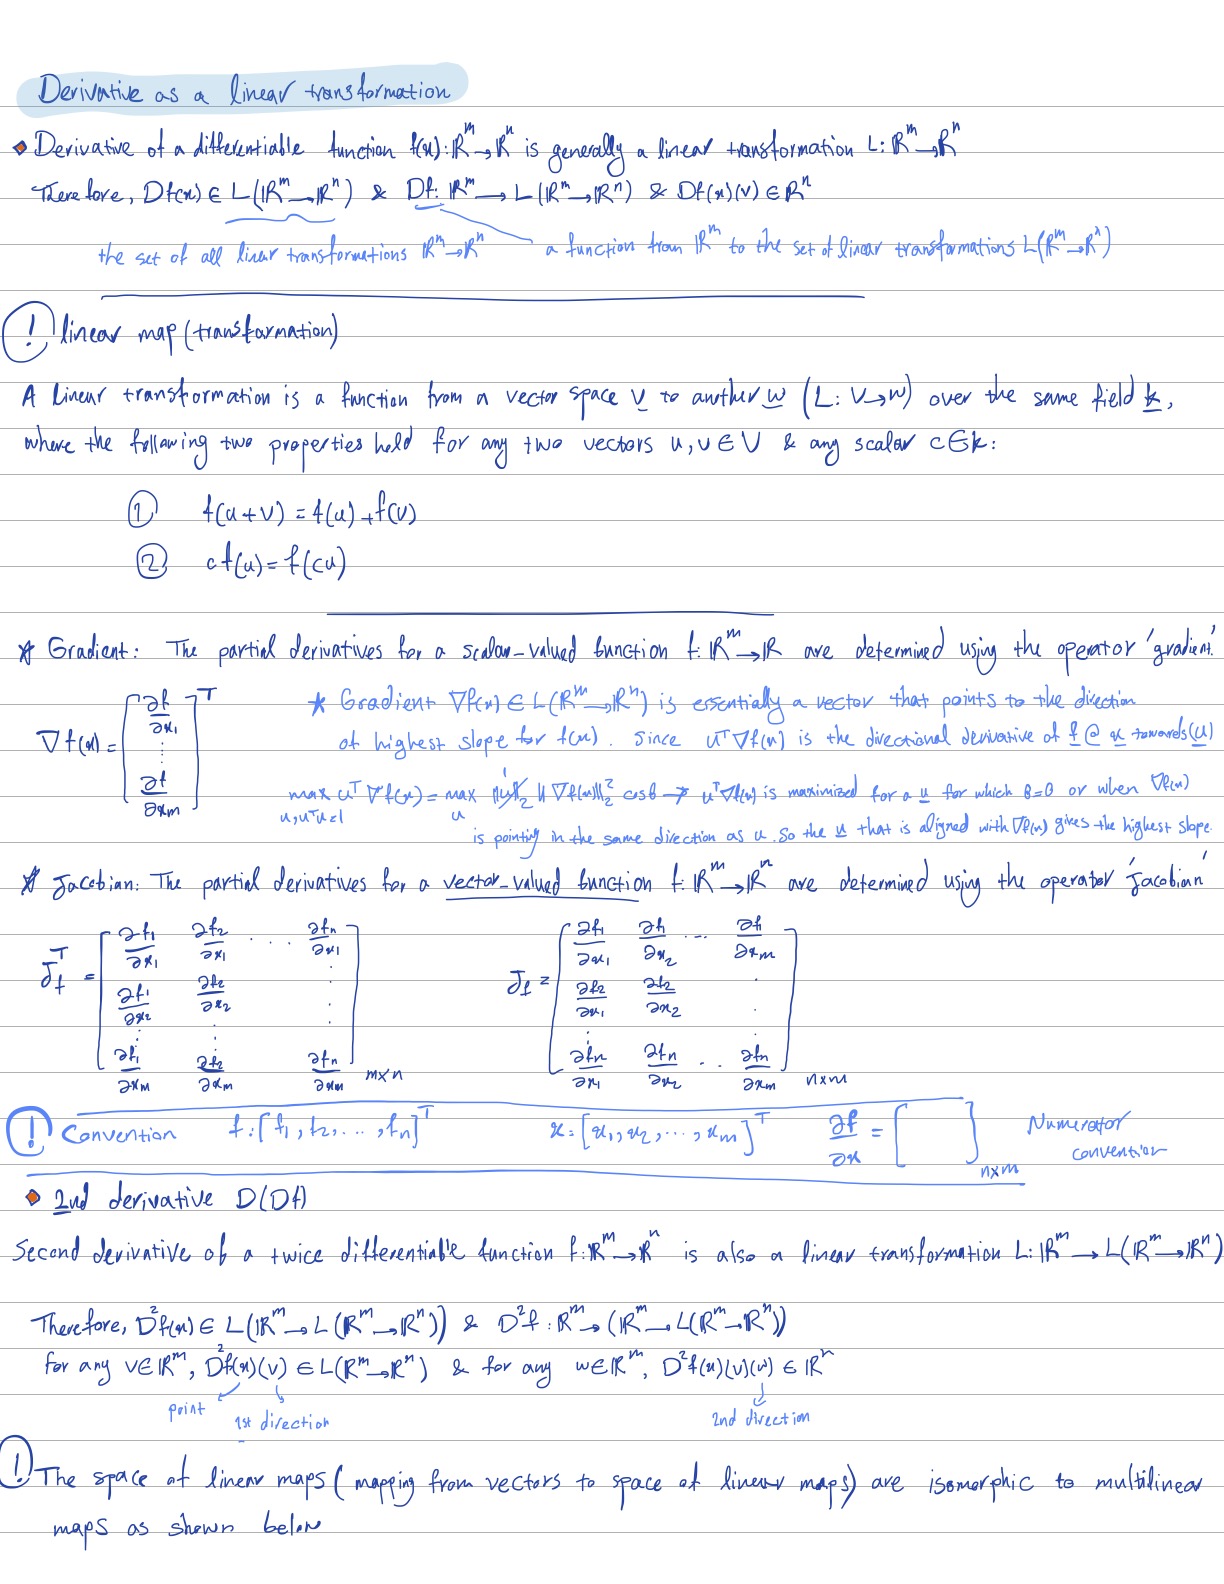 Derivative as a linear transformation
Derivative of a differentiable function f(x): ℝᵐ→ℝⁿ is generally a linear transformation L: ℝᵐ→ℝⁿ
Therefore, Df(x) ∈ L(ℝᵐ→ℝⁿ) & Df: ℝᵐ → L(ℝᵐ→ℝⁿ) & Df(x)(v) ∈ ℝⁿ
the set of all linear transformations ℝᵐ→ℝⁿ
a function from ℝᵐ to the set of linear transformations L(ℝᵐ→ℝⁿ)
! linear map (transformation)
A linear transformation is a function from a vector space V to another W (L: V→W) over the same field k,
where the following two properties hold for any two vectors u, v ∈ V & any scalar c ∈ k:
① f(u+v) = f(u) + f(v)
② cf(u) = f(cu)
* Gradient: The partial derivatives for a scalar-valued function f: ℝᵐ→ℝ are determined using the operator 'gradient'.
∇f(x) = [∂f/∂x₁ ⋮ ∂f/∂xₘ]ᵀ
* Gradient ∇f(x) ∈ L(ℝᵐ→ℝⁿ) is essentially a vector that points to the direction
of highest slope for f(x). Since uᵀ∇f(x) is the directional derivative of f @ x towards (u)
max u,uᵀu=1 uᵀ∇f(x) = max u ‖u‖₂ 1 ‖∇f(x)‖₂² cosθ → uᵀ∇f(x) is maximized for a u for which θ=0 or when ∇f(x)
is pointing in the same direction as u. So the u that is aligned with ∇f(x) gives the highest slope.
* Jacobian: The partial derivatives for a vector-valued function f: ℝᵐ→ℝⁿ are determined using the operator 'Jacobian'
J_fᵀ = [∂f₁/∂x₁ ∂f₂/∂x₁ ... ∂fₙ/∂x₁
∂f₁/∂x₂ ∂f₂/∂x₂ ⋮
⋮ ⋮
∂f₁/∂xₘ ∂f₂/∂xₘ ∂fₙ/∂xₘ] m×n
J_f = [∂f₁/∂x₁ ∂f₁/∂x₂ ... ∂f₁/∂xₘ
∂f₂/∂x₁ ∂f₂/∂x₂ ⋮
⋮
∂fₙ/∂x₁ ∂fₙ/∂x₂ .. ∂fₙ/∂xₘ] n×m
! Convention f: [f₁, f₂, ..., fₙ]ᵀ x: [x₁, x₂, ..., xₘ]ᵀ ∂f/∂x = [ ] n×m Numerator
convention
2nd derivative D(Df)
Second derivative of a twice differentiable function f: ℝᵐ→ℝⁿ is also a linear transformation L: ℝᵐ → L(ℝᵐ→ℝⁿ)
Therefore, D²f(x) ∈ L(ℝᵐ→L(ℝᵐ→ℝⁿ)) & D²f: ℝᵐ→(ℝᵐ→L(ℝᵐ→ℝⁿ))
for any v∈ℝᵐ, D²f(x)(v) ∈ L(ℝᵐ→ℝⁿ) & for any w∈ℝᵐ, D²f(x)(v)(w) ∈ ℝⁿ
point 1st direction 2nd direction
! The space of linear maps (mapping from vectors to space of linear maps) are isomorphic to multilinear
maps as shown below